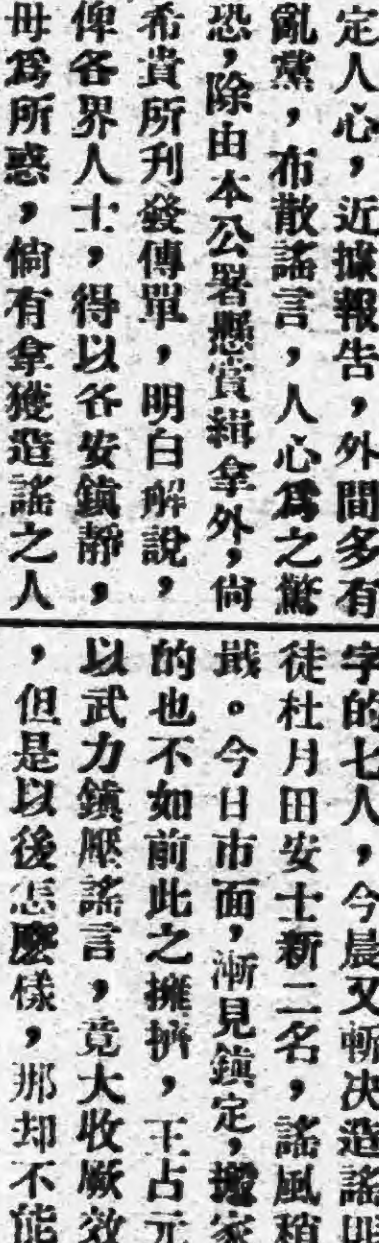 定人心，近據報告，外間多有
亂黨，布散謠言，人心爲之驚
恐，除由本公署懸賞緝拿外，尙
希貴所刋發傳單，明白解說，
俾各界人士，得以各安鎭靜，
毋爲所惑，倘有拿獲造謠之人
字的七人，今晨又斬决造謠
徒杜月田安士新二名，謠風稍
戢。今日市面，漸見鎭定，搬家
的也不如前此之擁擠，王占元
以武力鎭壓謠言，竟大收厥效
，但是以後怎麽樣，那却不能